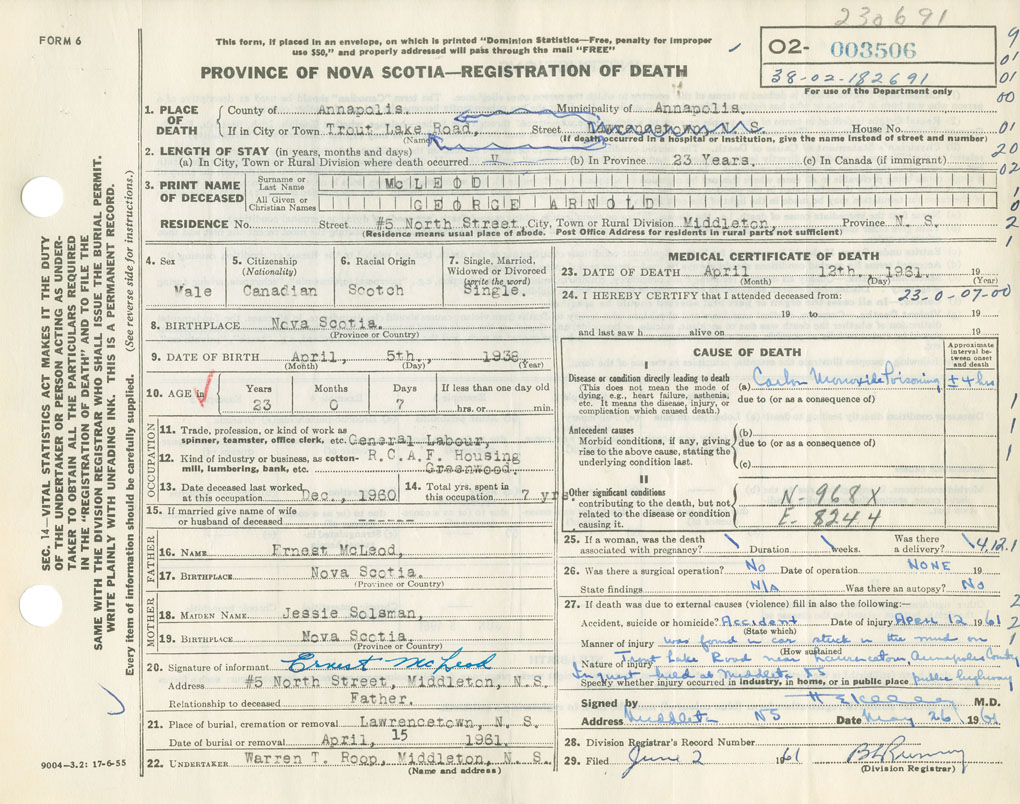 230691
FORM 6
This form, if placed in an envelope, on which is printed "Dominion Statistics—Free, penalty for improper
use $50," and properly addressed will pass through the mail "FREE"
02- 003506
38-02-182691
For use of the Department only
PROVINCE OF NOVA SCOTIA—REGISTRATION OF DEATH
1. PLACE OF DEATH
County of Annapolis. Municipality of Annapolis.
If in City or Town Trout Lake Road, Street Lawrencetown, N. S. House No.
(Name) (If death occurred in a hospital or institution, give the name instead of street and number)
2. LENGTH OF STAY (in years, months and days)
(a) In City, Town or Rural Division where death occurred (b) In Province 23 Years. (c) In Canada (if immigrant)
3. PRINT NAME OF DECEASED
Surname or Last Name McLEOD
All Given or Christian Names GEORGE ARNOLD
RESIDENCE No. Street #5 North Street, City, Town or Rural Division Middleton, Province N. S.
(Residence means usual place of abode. Post Office Address for residents in rural parts not sufficient)
4. Sex
Male
5. Citizenship
(Nationality)
Canadian
6. Racial Origin
Scotch
7. Single, Married,
Widowed or Divorced
(write the word)
Single.
8. BIRTHPLACE Nova Scotia.
(Province or Country)
9. DATE OF BIRTH April, 5th., 1938.
(Month) (Day) (Year)
10. AGE in
Years Months Days If less than one day old
23 0 7 hrs. or min.
OCCUPATION
11. Trade, profession, or kind of work as
spinner, teamster, office clerk, etc. General Labour,
12. Kind of industry or business, as cotton-
mill, lumbering, bank, etc. R.C.A.F. Housing
Greenwood,
13. Date deceased last worked
at this occupation Dec., 1960
14. Total yrs. spent in
this occupation 7 yrs.
15. If married give name of wife
or husband of deceased ------
FATHER
16. NAME Ernest McLeod,
17. BIRTHPLACE Nova Scotia.
(Province or Country)
MOTHER
18. MAIDEN NAME Jessie Solsman,
19. BIRTHPLACE Nova Scotia.
(Province or Country)
20. Signature of informant Ernest McLeod
Address #5 North Street, Middleton, N.S.
Relationship to deceased Father.
21. Place of burial, cremation or removal Lawrencetown, N. S.
Date of burial or removal April, 15 1961.
22. UNDERTAKER Warren T. Roop, Middleton, N. S.
(Name and address)
MEDICAL CERTIFICATE OF DEATH
23. DATE OF DEATH April 12th., 1961. 19
(Month) (Day) (Year)
24. I HEREBY CERTIFY that I attended deceased from: 23-0-07-00
19 to 19
and last saw h alive on 19
CAUSE OF DEATH
Approximate
interval be-
tween onset
and death
I
Disease or condition directly leading to death
(This does not mean the mode of
dying, e.g., heart failure, asthenia,
etc. It means the disease, injury, or
complication which caused death.)
(a) Carbon Monoxide Poisoning ± 4 hrs
due to (or as a consequence of)
Antecedent causes
Morbid conditions, if any, giving
rise to the above cause, stating the
underlying condition last.
(b)
due to (or as a consequence of)
(c)
II
Other significant conditions
contributing to the death, but not
related to the disease or condition
causing it.
N-968X
E-8244
25. If a woman, was the death
associated with pregnancy? Duration weeks. Was there
a delivery? 14.12.1
26. Was there a surgical operation? No Date of operation NONE 19
State findings N/A Was there an autopsy? No
27. If death was due to external causes (violence) fill in also the following:—
Accident, suicide or homicide? Accident Date of injury APRIL 12 1961
(State which)
Manner of injury was found in car stuck in the mud on
(How sustained)
Nature of injury Trout Lake Road near Lawrencetown, Annapolis County
Inquest held at Middleton NS
Specify whether injury occurred in industry, in home, or in public place public highway
Signed by M.D.
Address Middleton NS Date May 26 1961
28. Division Registrar's Record Number
29. Filed June 2 1961
(Division Registrar)
SEC. 14—VITAL STATISTICS ACT MAKES IT THE DUTY
OF THE UNDERTAKER OR PERSON ACTING AS UNDER-
TAKER TO OBTAIN ALL THE PARTICULARS REQUIRED
IN THE "REGISTRATION OF DEATH" AND TO FILE THE
SAME WITH THE DIVISION REGISTRAR WHO SHALL ISSUE THE BURIAL PERMIT.
WRITE PLAINLY WITH UNFADING INK. THIS IS A PERMANENT RECORD.
Every item of information should be carefully supplied. (See reverse side for instructions.)
9004-3.2: 17-6-55
9
01
01
00
01
20
02
1
0
2
1
1
1
1
2
2
1